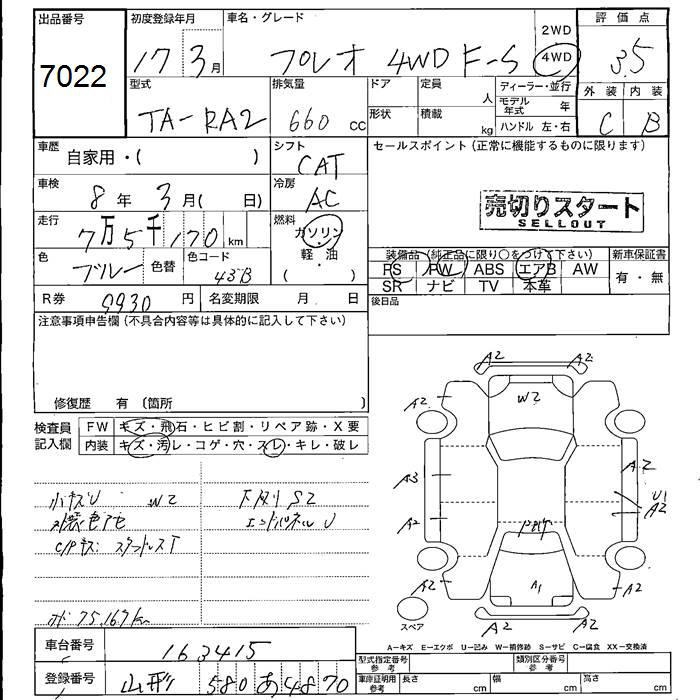 出品番号 初度登録年月 車名・グレード 2WD 4WD 評価点
7022 17 3月 プレオ 4WD F-S 3.5
型式 排気量 ドア 定員 人 ディーラー・並行 外装 内装
TA-RA2 660 cc 形状 積載 kg モデル年式 年 C B
ハンドル 左・右
車歴 自家用・( ) シフト CAT セールスポイント(正常に機能するものに限ります)
車検 8年 3月( 日) 冷房 AC
売切りスタート
SELLOUT
走行 7万5千170km 燃料 ガソリン・軽・油 ( )
色 ブルー 色替 色コード 43B
装備品(純正品に限り○をつけて下さい) 新車保証書
PS PW ABS エアB AW 有・無
SR ナビ TV 本革
R券 9930円 名変期限 月 日 後日品
注意事項申告欄(不具合内容等は具体的に記入して下さい)
修復歴 有 (箇所
検査員記入欄 FW キズ・飛石・ヒビ割・リペア跡・X要
内装 キズ・汚レ・コゲ・穴・スレ・キレ・破レ
小キズU W2 下廻りS2
外装色アセ エンドパネルU
スタッドレスT
75,169km
A2 A2
A2 W2 A2
A3 A2
A2 U1
A2
A2 A1 A2
A2 A2
スペア
A-キズ E-エクボ U-凹み W-補修跡 S-サビ C-腐食 XX-交換済
車台番号 163415
型式指定番号 参考 類別区分番号 参考
登録番号 山形 580 あ 48 70
車庫証明用 参考 長さ cm 幅 cm 高さ cm